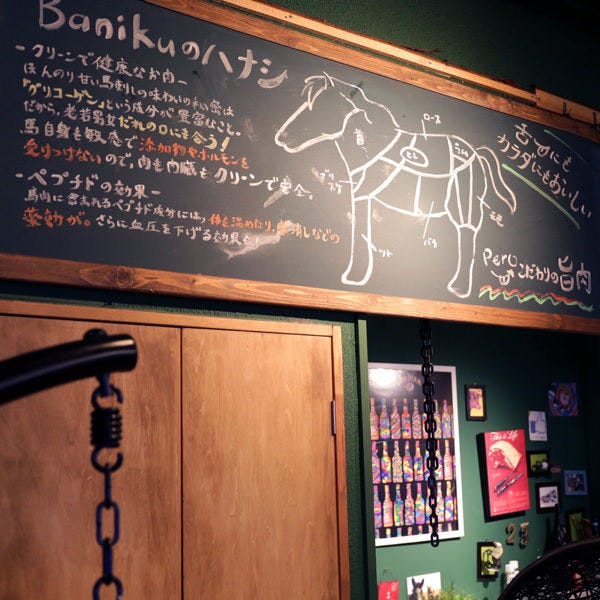 Banikuのハナシ
-クリーンで健康なお肉-
ほんのり甘い馬刺しの味わいの秘密は
「グリコーゲン」という成分が豊富なこと。
だから、老若男女だれの口にも合う!
馬自身も敏感で添加物やホルモンを
受りつけないので、肉も内臓もクリーンで安全。
-ペプチドの効果-
馬肉に含まれるペプチド成分には、体を温めたり、消しなどの
薬効が。さらに血圧を下げる効果も!
首
ロース
ヒレ
ラム
バラ
舌にも
カラダにもおいしい
Pero
こだわりの旨肉
This is Life
23